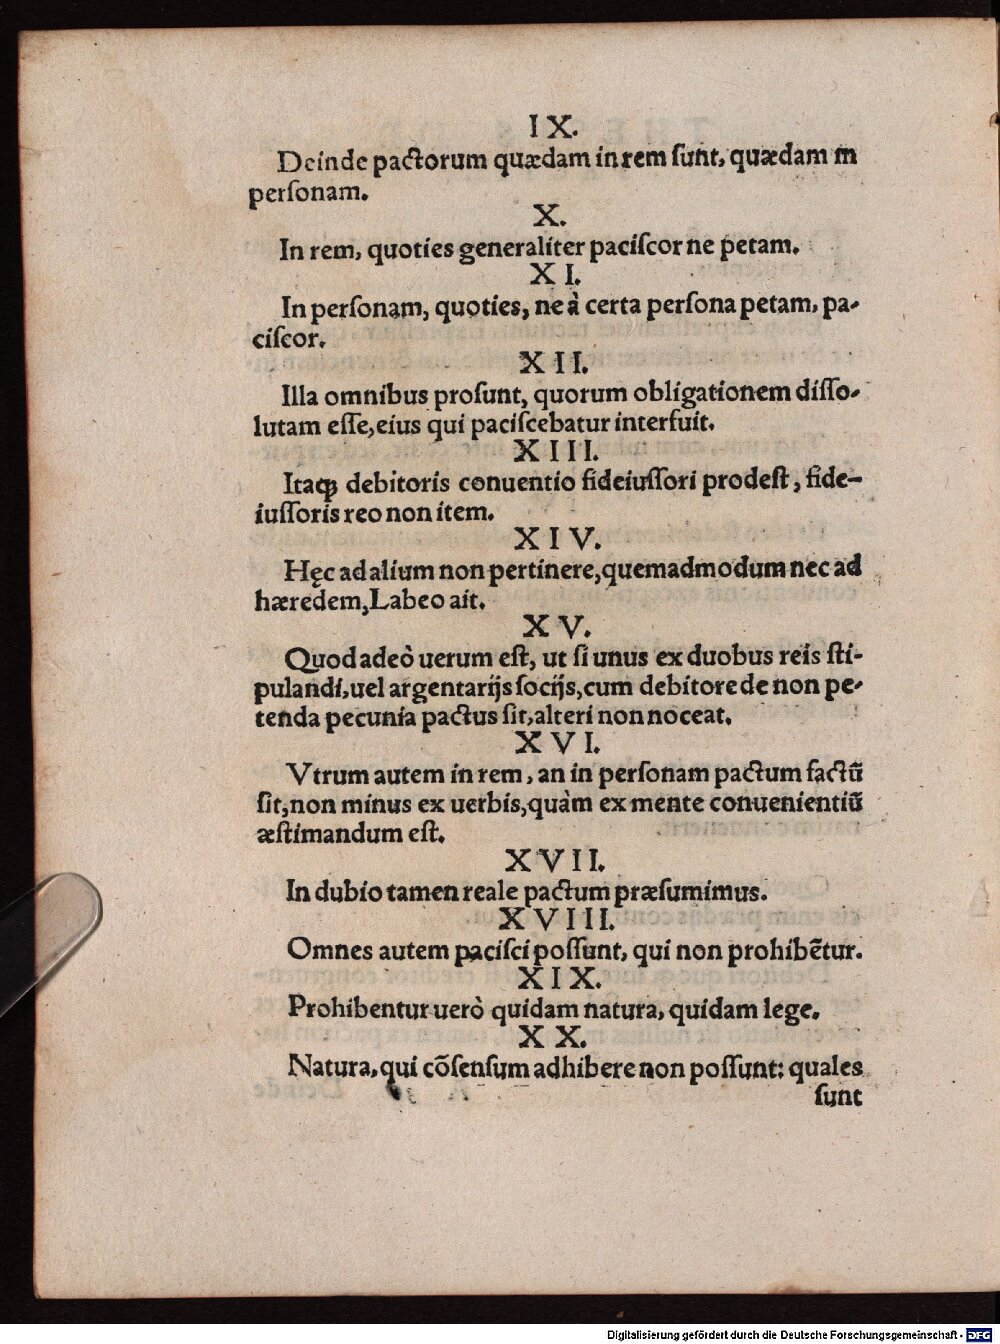 IX.
Deinde pactorum quædam in rem ſunt, quædam in
perſonam.
X.
In rem, quoties generaliter paciſcor ne petam.
XI.
In perſonam, quoties, ne à certa perſona petam, pa-
ciſcor.
XII.
Illa omnibus proſunt, quorum obligationem diſſo-
lutam eſſe, eius qui paciſcebatur interfuit.
XIII.
Itaqꝫ debitoris conuentio fideiuſſori prodeſt, fide-
iuſſoris reo non item.
XIV.
Hęc ad alium non pertinere, quemadmodum nec ad
hæredem, Labeo ait.
XV.
Quod adeò uerum eſt, ut ſi unus ex duobus reis ſti-
pulandi, uel argentarijs ſocijs, cum debitore de non pe-
tenda pecunia pactus ſit, alteri non noceat.
XVI.
Vtrum autem in rem, an in perſonam pactum factũ
ſit, non minus ex uerbis, quàm ex mente conuenientiũ
æſtimandum eſt.
XVII.
In dubio tamen reale pactum præſumimus.
XVIII.
Omnes autem paciſci poſſunt, qui non prohibẽtur.
XIX.
Prohibentur uerò quidam natura, quidam lege.
XX.
Natura, qui cõſenſum adhibere non poſſunt: quales
ſunt
Digitalisierung gefördert durch die Deutsche Forschungsgemeinschaft - DFG